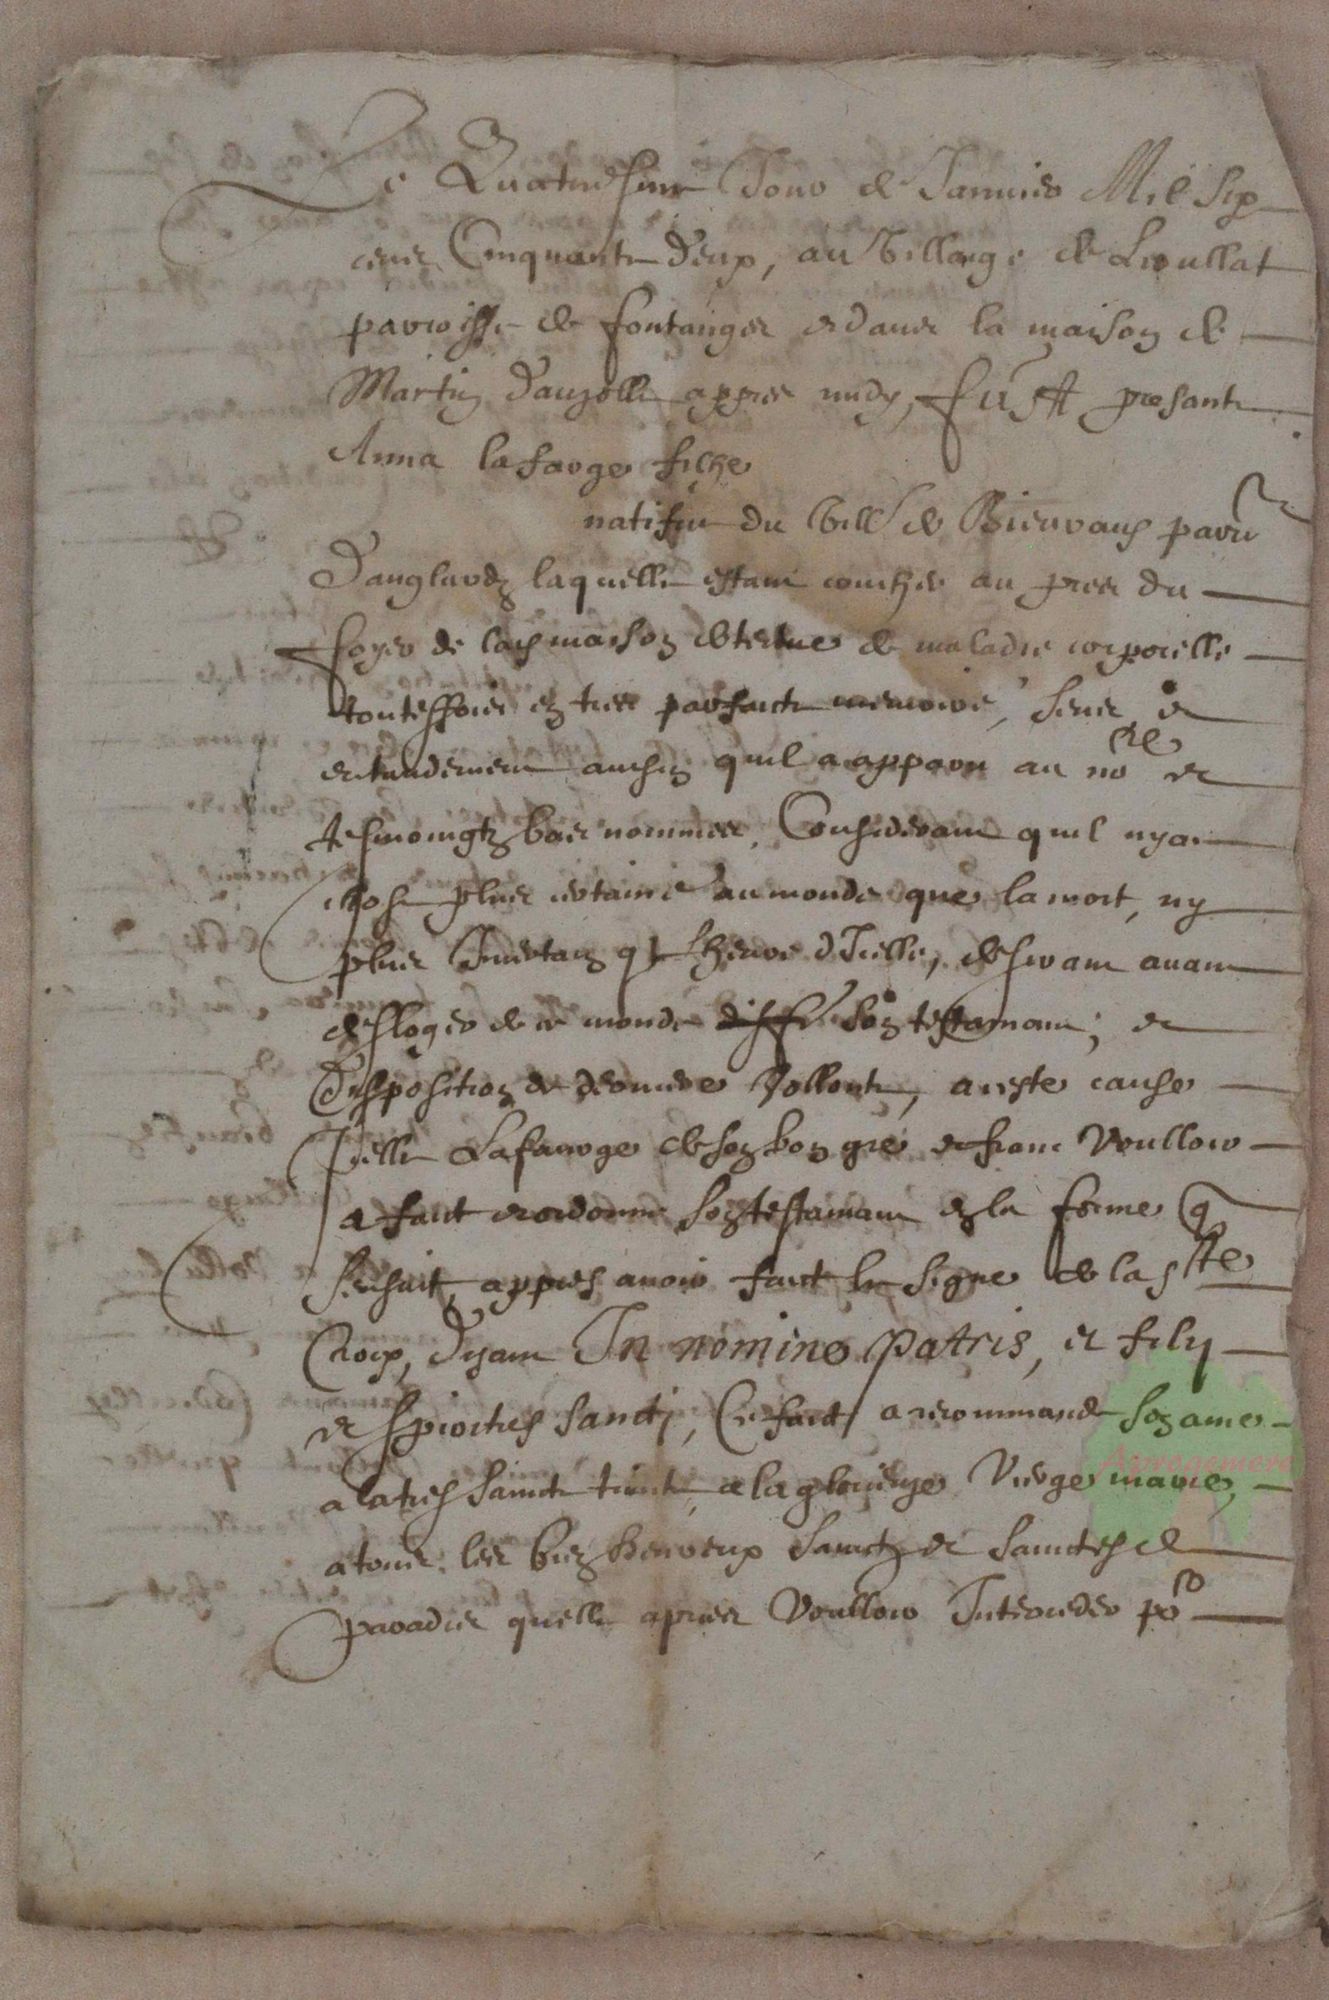 Le Quatriesme Jour de Janvier Mil Six
cens Cinquante deux, au Village de Lioullat
parroisse de fontanges et dans la maison de
Martin Dauzolle appres midy, fust presante
Anna lafarge filhe
natifve du Vill de parr
Danglardz laquelle estant couchée au pres du
foyer de lad maison detenue de maladie corporelle
touteffois en tres parfaicte memoire, sens, et
entandement ainsin quil a apparu au nore et
tesmoingtz bas nommes, Considerant quil nya
chose plus certaine au monde que la mort, ny
plus Incertain que lheure dIcelle, desirant avant
desloger de ce monde son testamant, et
disposition de derniere Vollonte, a ceste cause
Icelle Lafarge de son bon gré et franc Voulloir
a faict et ordonne son testamant en la forme q
sensuit, appres avoir faict le signe de la ste
Croix, disant In nomine Patris, et filij
et Spiritus Sancti, Ce faict a recommande son ame
a la tres Saincte trinite, a la glorieuze Vierge marie,
a tous les bien heureux Sainctz et Sainctes de
paradis quelle a pries Voulloir Interceder pr
Aprogemere